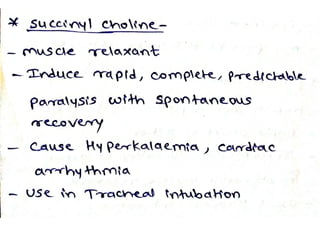 * Succinyl choline -
- muscle relaxant
- Induce rapid, complete, predictable
paralysis with spontaneous
recovery
- Cause Hyperkalaemia, cardiac
arrhythmia
- Use in Tracheal intubation